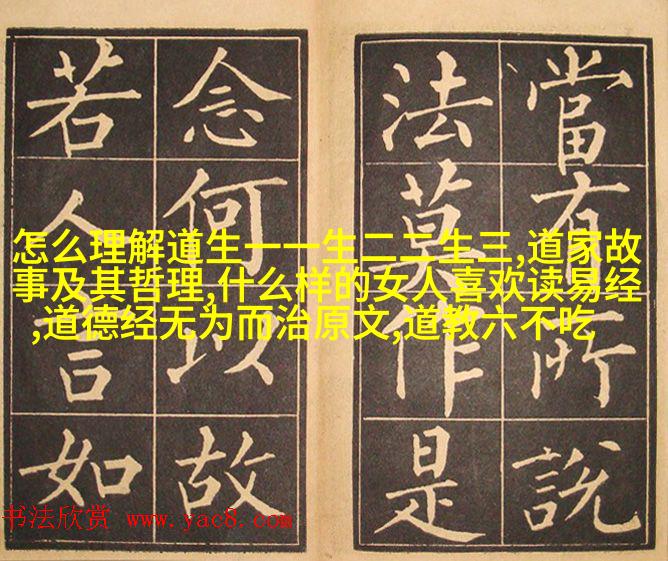 當有所說
法莫作是
念何以故
若人言如
怎么理解道生一一生二二生三,道家故
事及其哲理,什么样的女人喜欢读易经
,道德经无为而治原文,道教六不吃
书法欣赏 www.yac8.com